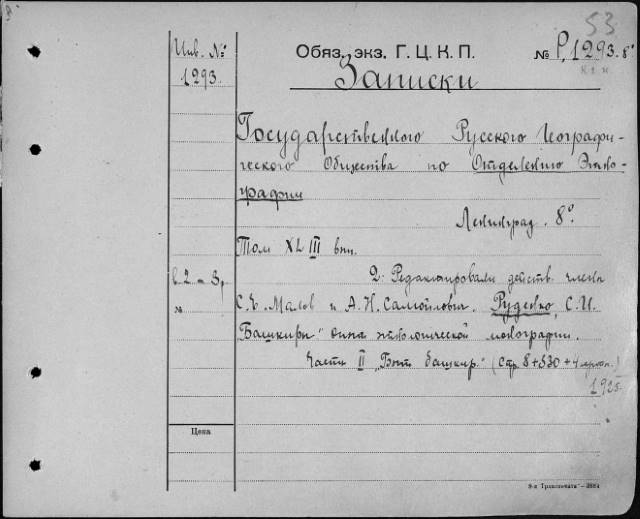 53
Инв. №
Обяз. экз. Г. Ц. К. П.
№ Р, 1293. 8°
1293.
Записки
Государственного Русского Географи-
ческого Общества по Отделению Этно-
графии
Ленинград. 8°.
Том XLIII вып.
в. 2 – 3р
2. Редактировали действ. члены
№
С. Е. Малов и А. Н. Самойлович. Руденко, С. И.
Башкиры" опыт этнологической монографии.
Часть II „Быт башкир." (Стр 8+330+4
1925.
Цена
8-я Транспечати"—3884